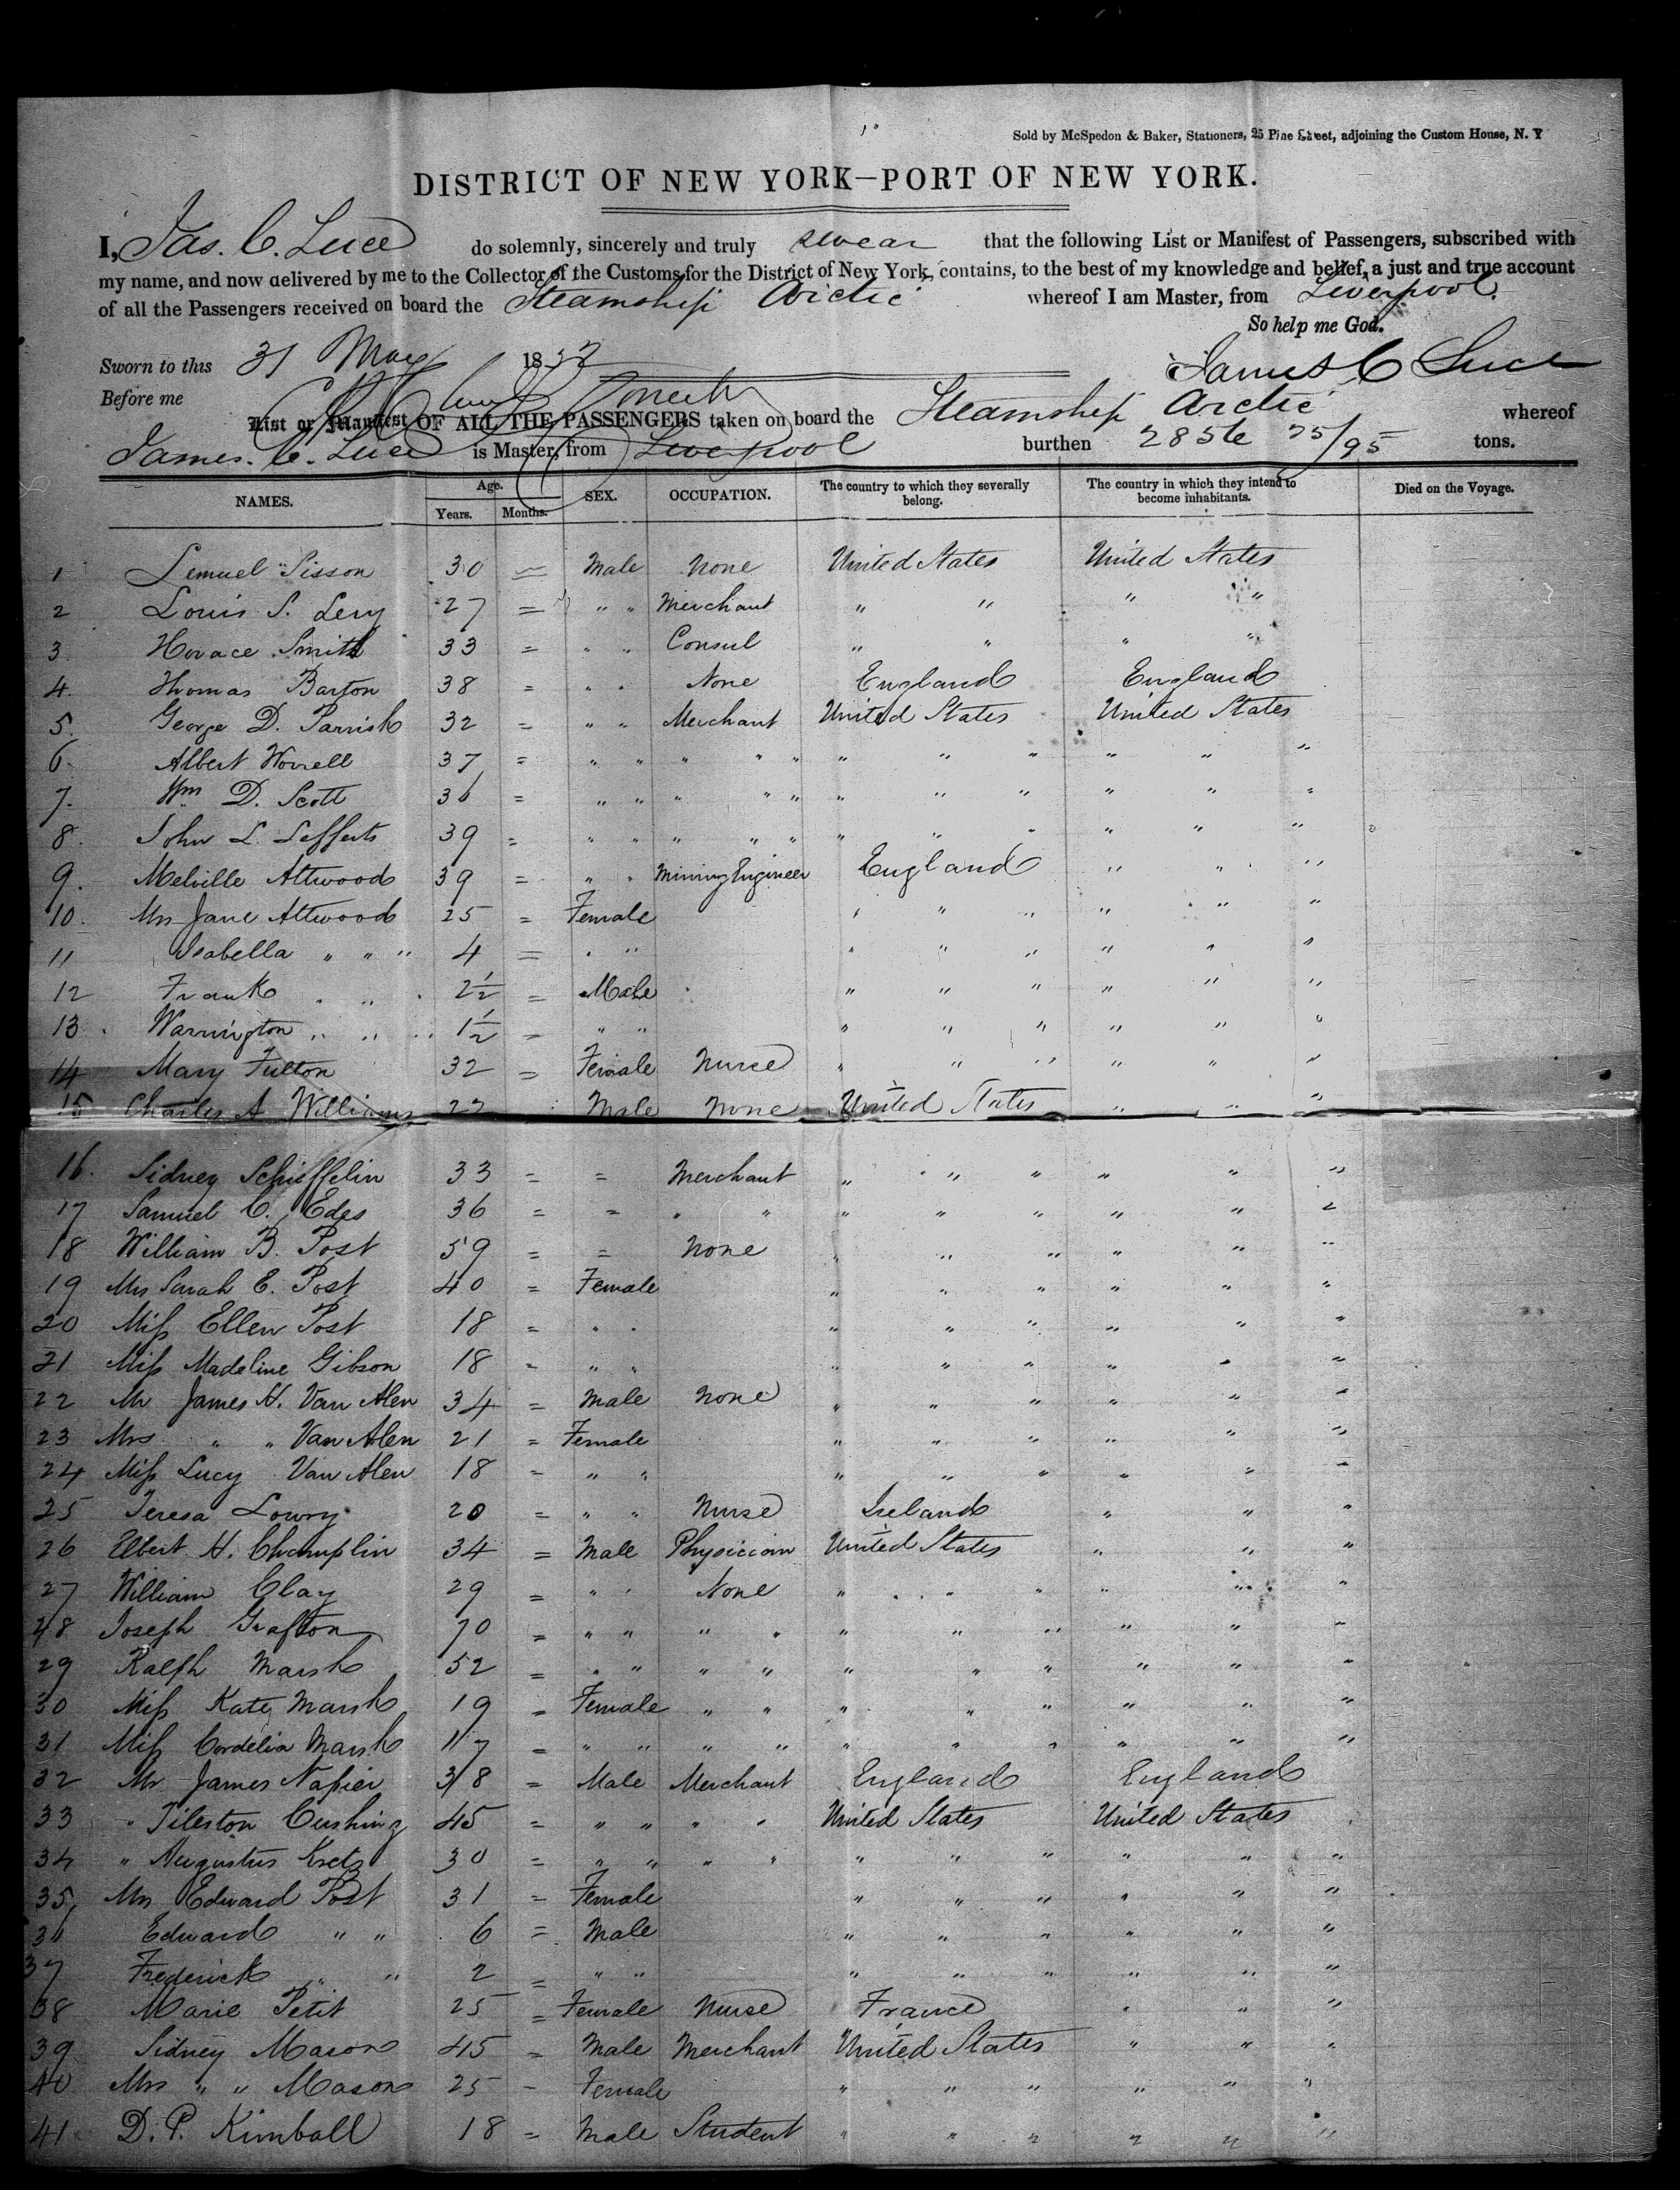 Sold by McSpedon & Baker, Stationers, 25 Pine Street, adjoining the Custom House, N. Y
DISTRICT OF NEW YORK—PORT OF NEW YORK.
I, Jas. C. Luce do solemnly, sincerely and truly swear that the following List or Manifest of Passengers, subscribed with
my name, and now delivered by me to the Collector of the Customs for the District of New York, contains, to the best of my knowledge and belief, a just and true account
of all the Passengers received on board the Steamship Arctic whereof I am Master, from Liverpool.
So help me God.
Sworn to this 31 May 1852 James C Luce
Before me
List or Manifest OF ALL THE PASSENGERS taken on board the Steamship Arctic whereof
James. C. Luce is Master, from Liverpool burthen 2856 75/95 tons.
NAMES. Age. Years. Months. SEX. OCCUPATION. The country to which they severally belong. The country in which they intend to become inhabitants. Died on the Voyage.
1 Lemuel Sisson 30 = Male None United States United States
2 Louis S. Levy 27 = " " Merchant " " " "
3. Horace Smith 33 = " " Consul " " " "
4. Thomas Barton 38 = " " None England England
5. George D. Parrish 32 = " " Merchant United States United States
6. Albert Worrell 37 = " " " " " " " " " " "
7. Wm D. Scott 36 = " " " " " " " " " " "
8. John L. Lefferts 39 = " " " " " " " " " " "
9. Melville Attwood 39 = " " Mining Engineer England " " "
10. Mrs Jane Attwood 25 = Female " " " " " "
11 Isabella " " " 4 = " " " " " " " "
12 Frank " " " 2½ = Male " " " " " "
13. Warrington " " " 1½ = " " " " " " " "
14 Mary Fulton 32 = Female Nurse " " " " " "
15 Charles A Williams 22 Male None United States " " "
16. Sidney Schieffelin 33 = = Merchant " " " " " "
17 Samuel C. Edes 36 = = " " " " " " " "
18 William B. Post 59 = = None " " " " " "
19 Mrs Sarah E. Post 40 = Female " " " " " "
20 Miss Ellen Post 18 = " " " " " " " "
21 Miss Madeline Gibson 18 = " " " " " " " "
22 Mr James H. Van Alen 34 = Male None " " " " " "
23 Mrs " " Van Alen 21 = Female " " " " " "
24 Miss Lucy Van Alen 18 = " " " " " " " "
25 Teresa Lowry 20 = " " Nurse Ireland " " "
26 Elbert H. Champlin 34 = Male Physician United States " " "
27 William Clay 29 = " " None " " " " " "
28 Joseph Grafton 70 = " " " " " " " " " "
29 Ralph Marsh 52 = " " " " " " " " " "
30 Miss Kate Marsh 19 = Female " " " " " " " "
31 Miss Cordelia Marsh 17 = " " " " " " " " " "
32 Mr James Napier 38 = Male Merchant England England
33 " Tileston Cushing 45 = " " " " United States United States
34 " Augustus 30 = " " " " " " " " " "
35 Mrs Edward Post 31 = Female " " " " " "
36 Edward " " 6 = Male " " " " " "
37 Frederick " " 2 = " " " " " " " "
38 Marie Petit 25 = Female Nurse France " " "
39 Sidney Mason 45 = Male Merchant United States " " "
40 Mrs " " Mason 25 - Female " " " " " "
41 D. P. Kimball 18 = Male Student " " " " " "